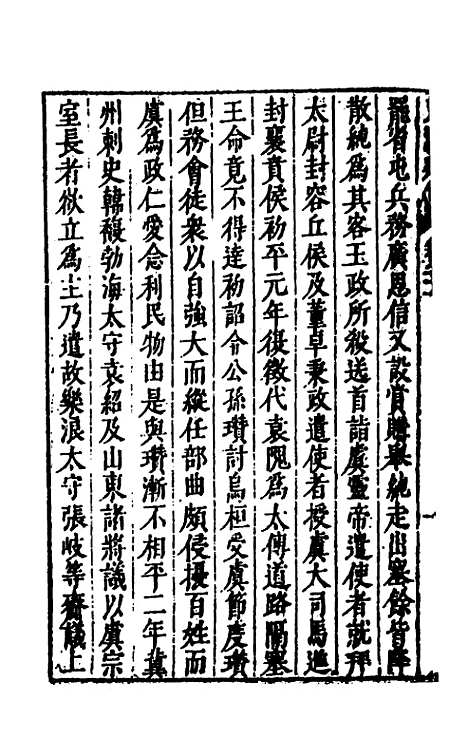 罷省屯兵務廣恩信又設賞購舉純走出塞餘皆降
散純爲其客王政所殺送首詣虞靈帝遣使者就拜
太尉封容丘侯及董卓秉政遣使者授虞大司馬進
封襄賁侯初平元年復徵代袁隗爲太傅道路隔塞
王命竟不得達初詔令公孫瓚討烏桓受虞節度瓚
但務會徒衆以自強大而縱任部曲頗侵擾百姓而
虞爲政仁愛念利民物由是與瓚漸不相平二年冀
州刺史韓馥勃海太守袁紹及山東諸將議以虞宗
室長者欲立爲主乃遣故樂浪太守張岐等齎議上